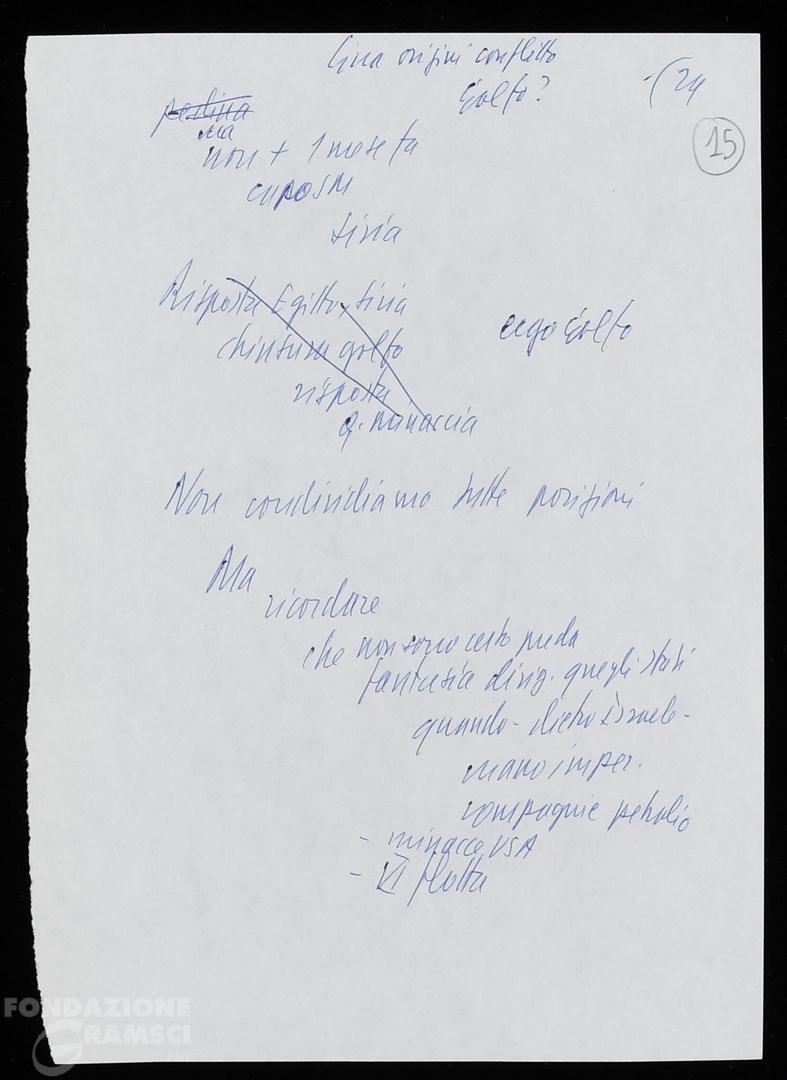 origini conflitto
Golfo?
24
15
ma
non + 1 mese fa
Siria
Risposta Egitto, Siria
chiusura golfo
ergo Golfo
risposta
a. minaccia
Non condividiamo tutte posizioni
Ma
ricordare
che non sono certo
fantasia dirig. quegli stati
quando - dietro Israele -
mano imper.
compagnie petrolio
- minacce USA
- VI Flotta
FONDAZIONE
GRAMSCI